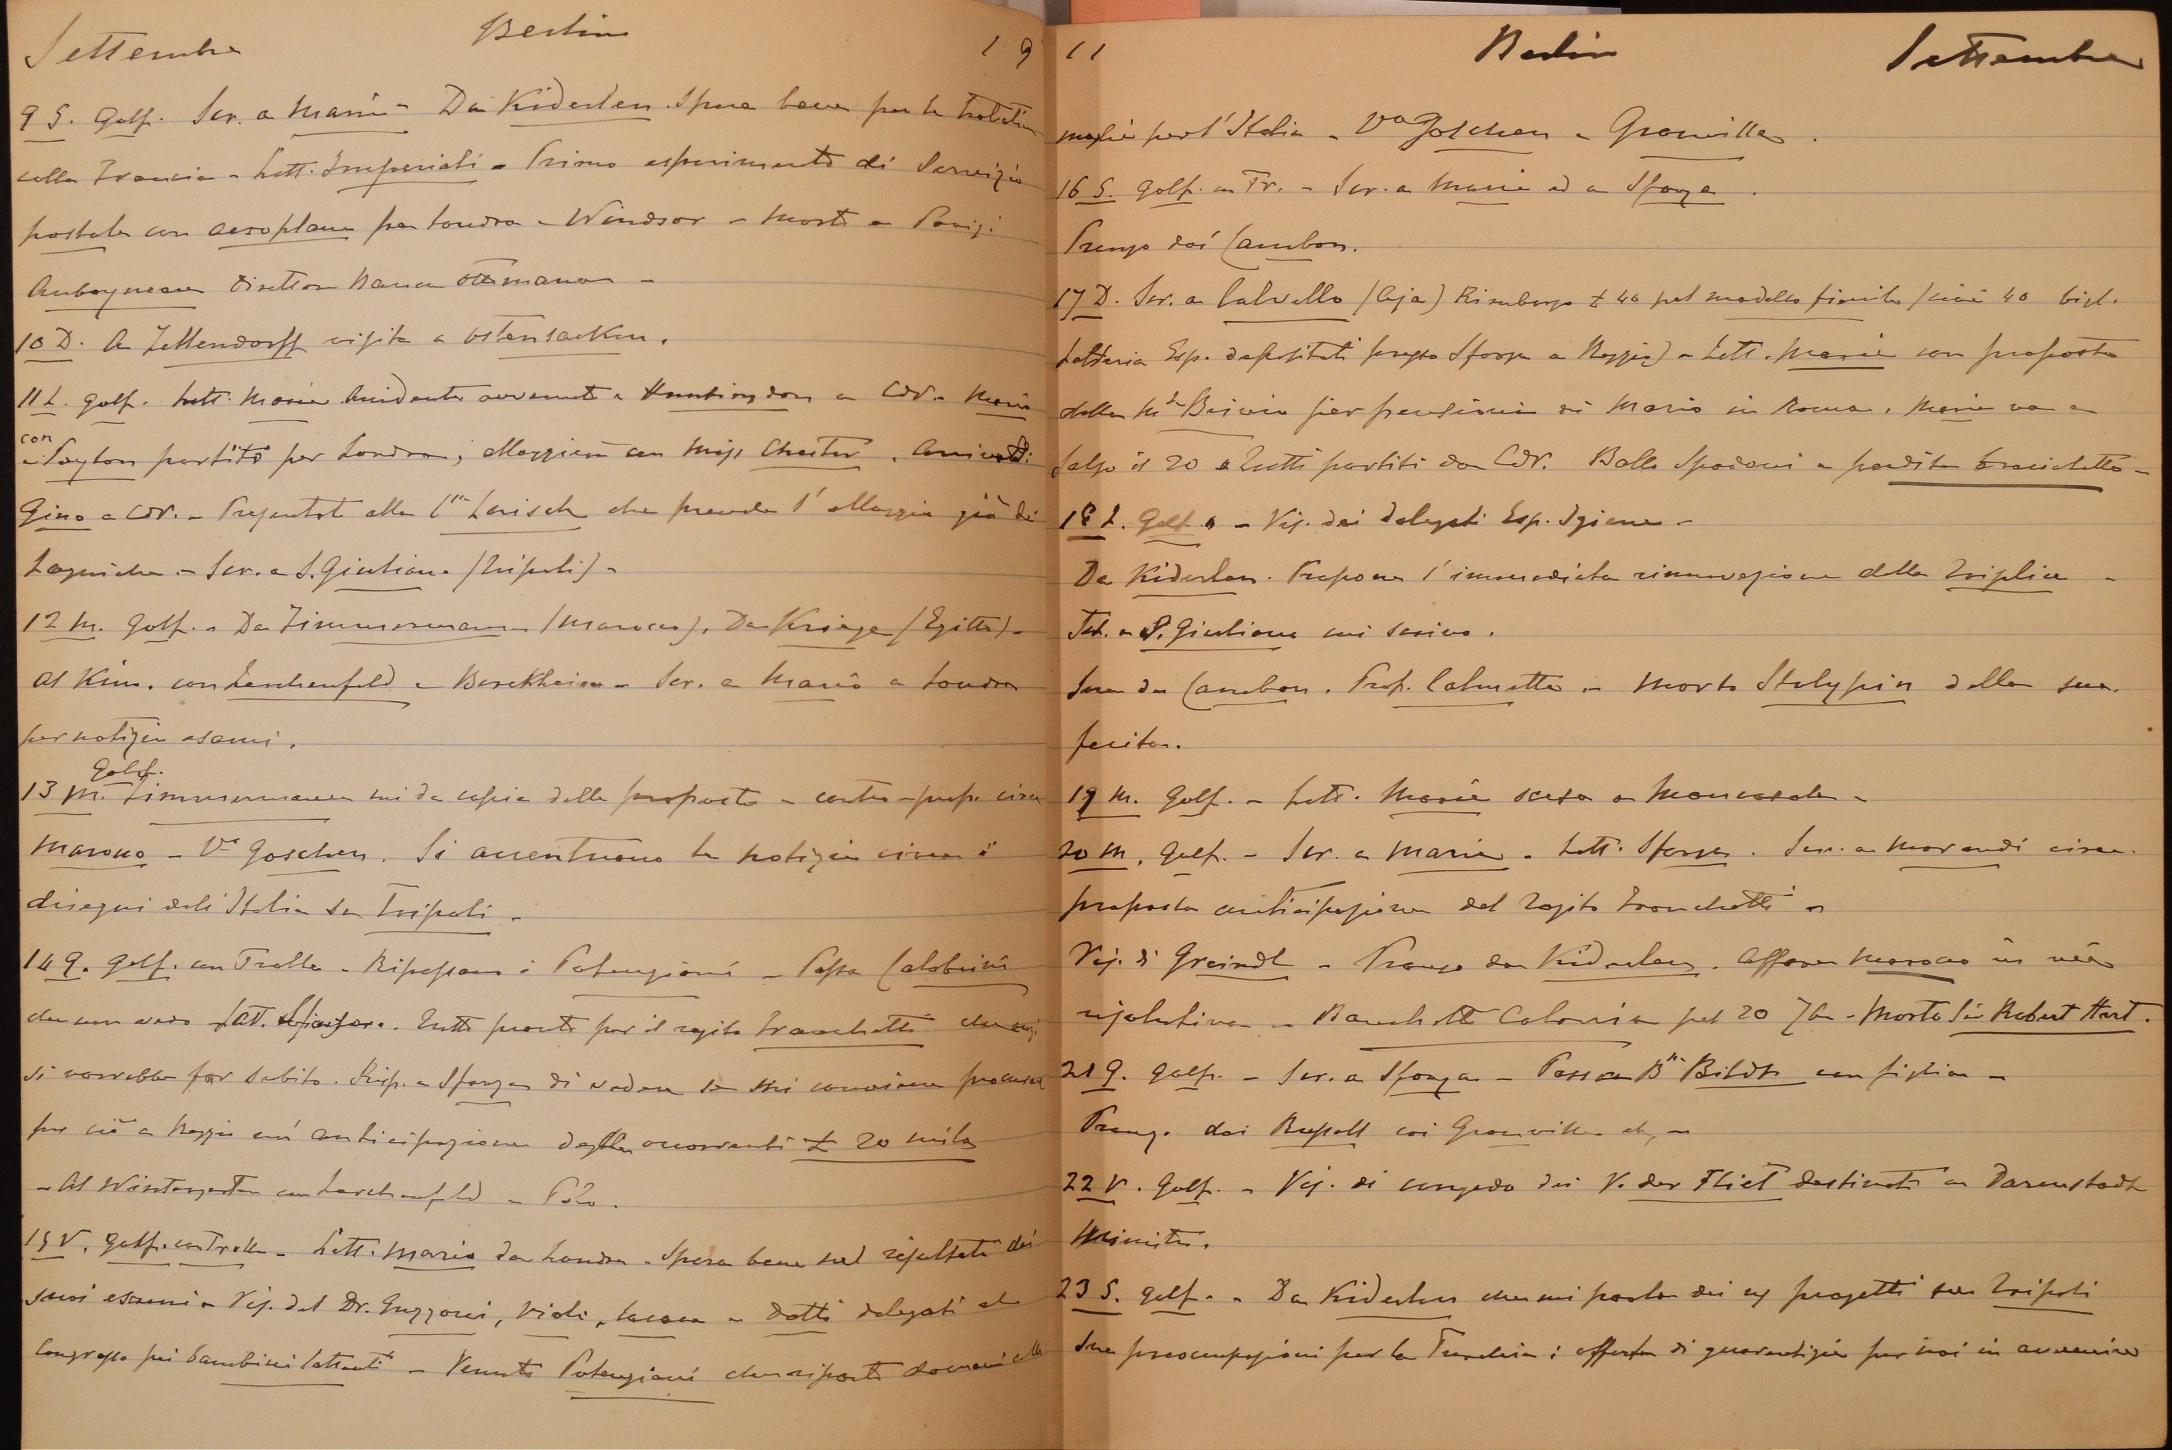 Settembre Berlino 19
9 S. Golf. Scr. a Mario - Da Kiderlen. Spera bene per le trattative
colla Francia - Lett. Imperiali - Primo esperimento di servizio
postale con aeroplano fra Londra - Windsor - Morto a Parigi
Auboyneau Direttore Banca Ottomana -
10 D. A Zettendorff visita a Ostensacken.
11 L. Golf. Lett. Maria Incidente avvenuto a Huntingdon a CdV. Mario
con Payton partito per Londra; alloggiano con Miss Chester. Arrivato
Gino a CdV. - Presentato alla C.ssa Larisch che prende l'alloggio già di
- Scr. a S. Giuliano (Tripoli) -
12 M. Golf. - Da Zimmermann (Marocco), Da Kriege (Egitto) -
Al Kin. con Lerchenfeld e Berckheim - Scr. a Mario a Londra
per notizie esami.
Golf.
13 M. Zimmermann mi da copia delle proposte e contro-prop. circa
Marocco - V.a Goschen. Si accentuano le notizie circa i
disegni dell'Italia su Tripoli -
14 G. Golf. con Trolle - Ripassano i Potenziani - Passa Calobrini
che non vedo. Tutto pronto per il rogito Tronchetti che
si vorrebbe far subito. Risp. a Sforza di vedere se mi conviene procurar
per ciò a Reggio un'anticipazione delle occorrenti £ 20 mila
- Al Wintergarten con Lerchenfeld - Polo.
15 V. Golf. con Trolle - Lett. Mario da Londra. Spera bene nel risultato dei
suoi esami - Vis. del Dr. Guzzoni, Violi, - Dotti delegati al
Congresso pei bambini lattanti - Venuto Potenziani che riparte domani colla
11 Berlin Settembre
moglie per l'Italia - V.a Goschen e Granville.
16 S. Golf. con Tr. - Scr. a Maria ed a Sforza.
Pranzo dai Cambon.
17 D. Scr. a Calvello (Aja) Rimborso £ 40 pel modello fiorito (cioè 40 bigl.
Lotteria Esp. depositati presso Sforza a Reggio) - Lett. Maria con proposta
della M.sa per pensione di Mario in Roma. Maria va a
Salso il 20 e tutti partiti da CdV. Ballo Spadoni e perdita braccialetto -
18 L. Golf. - Vis. dei delegati Esp. Igiene -
Da Kiderlen. Propone l'immediata rinnovazione della Triplice -
Tel. a S. Giuliano cui scrivo.
Sera da Cambon. Prof. Calmette - Morto Stolypin dalla sua
ferita.
19 M. Golf. - Lett. Maria scesa a Moncasale -
20 M. Golf. - Scr. a Maria - Lett. Sforza. Scr. a Morandi circa
proposta anticipazione del rogito Tronchetti -
Vis. di Greindl - Pranzo da Kiderlen. Affare Marocco in via
risolutiva - Banchetto Colonia pel 20 7bre - Morto Sir Robert Hart.
21 G. Golf. - Scr. a Sforza - Passa B.ne Bildt con figlia -
Pranzo dai Russell coi Granville etc -
22 V. Golf. - Vis. di congedo dei V. der Fliet destinato a Darmstadt
Ministro.
23 S. Golf. - Da Kiderlen che mi parla dei ns progetti su Tripoli
Sue preoccupazioni per la Turchia; offerta di guarentigie per noi in avvenire